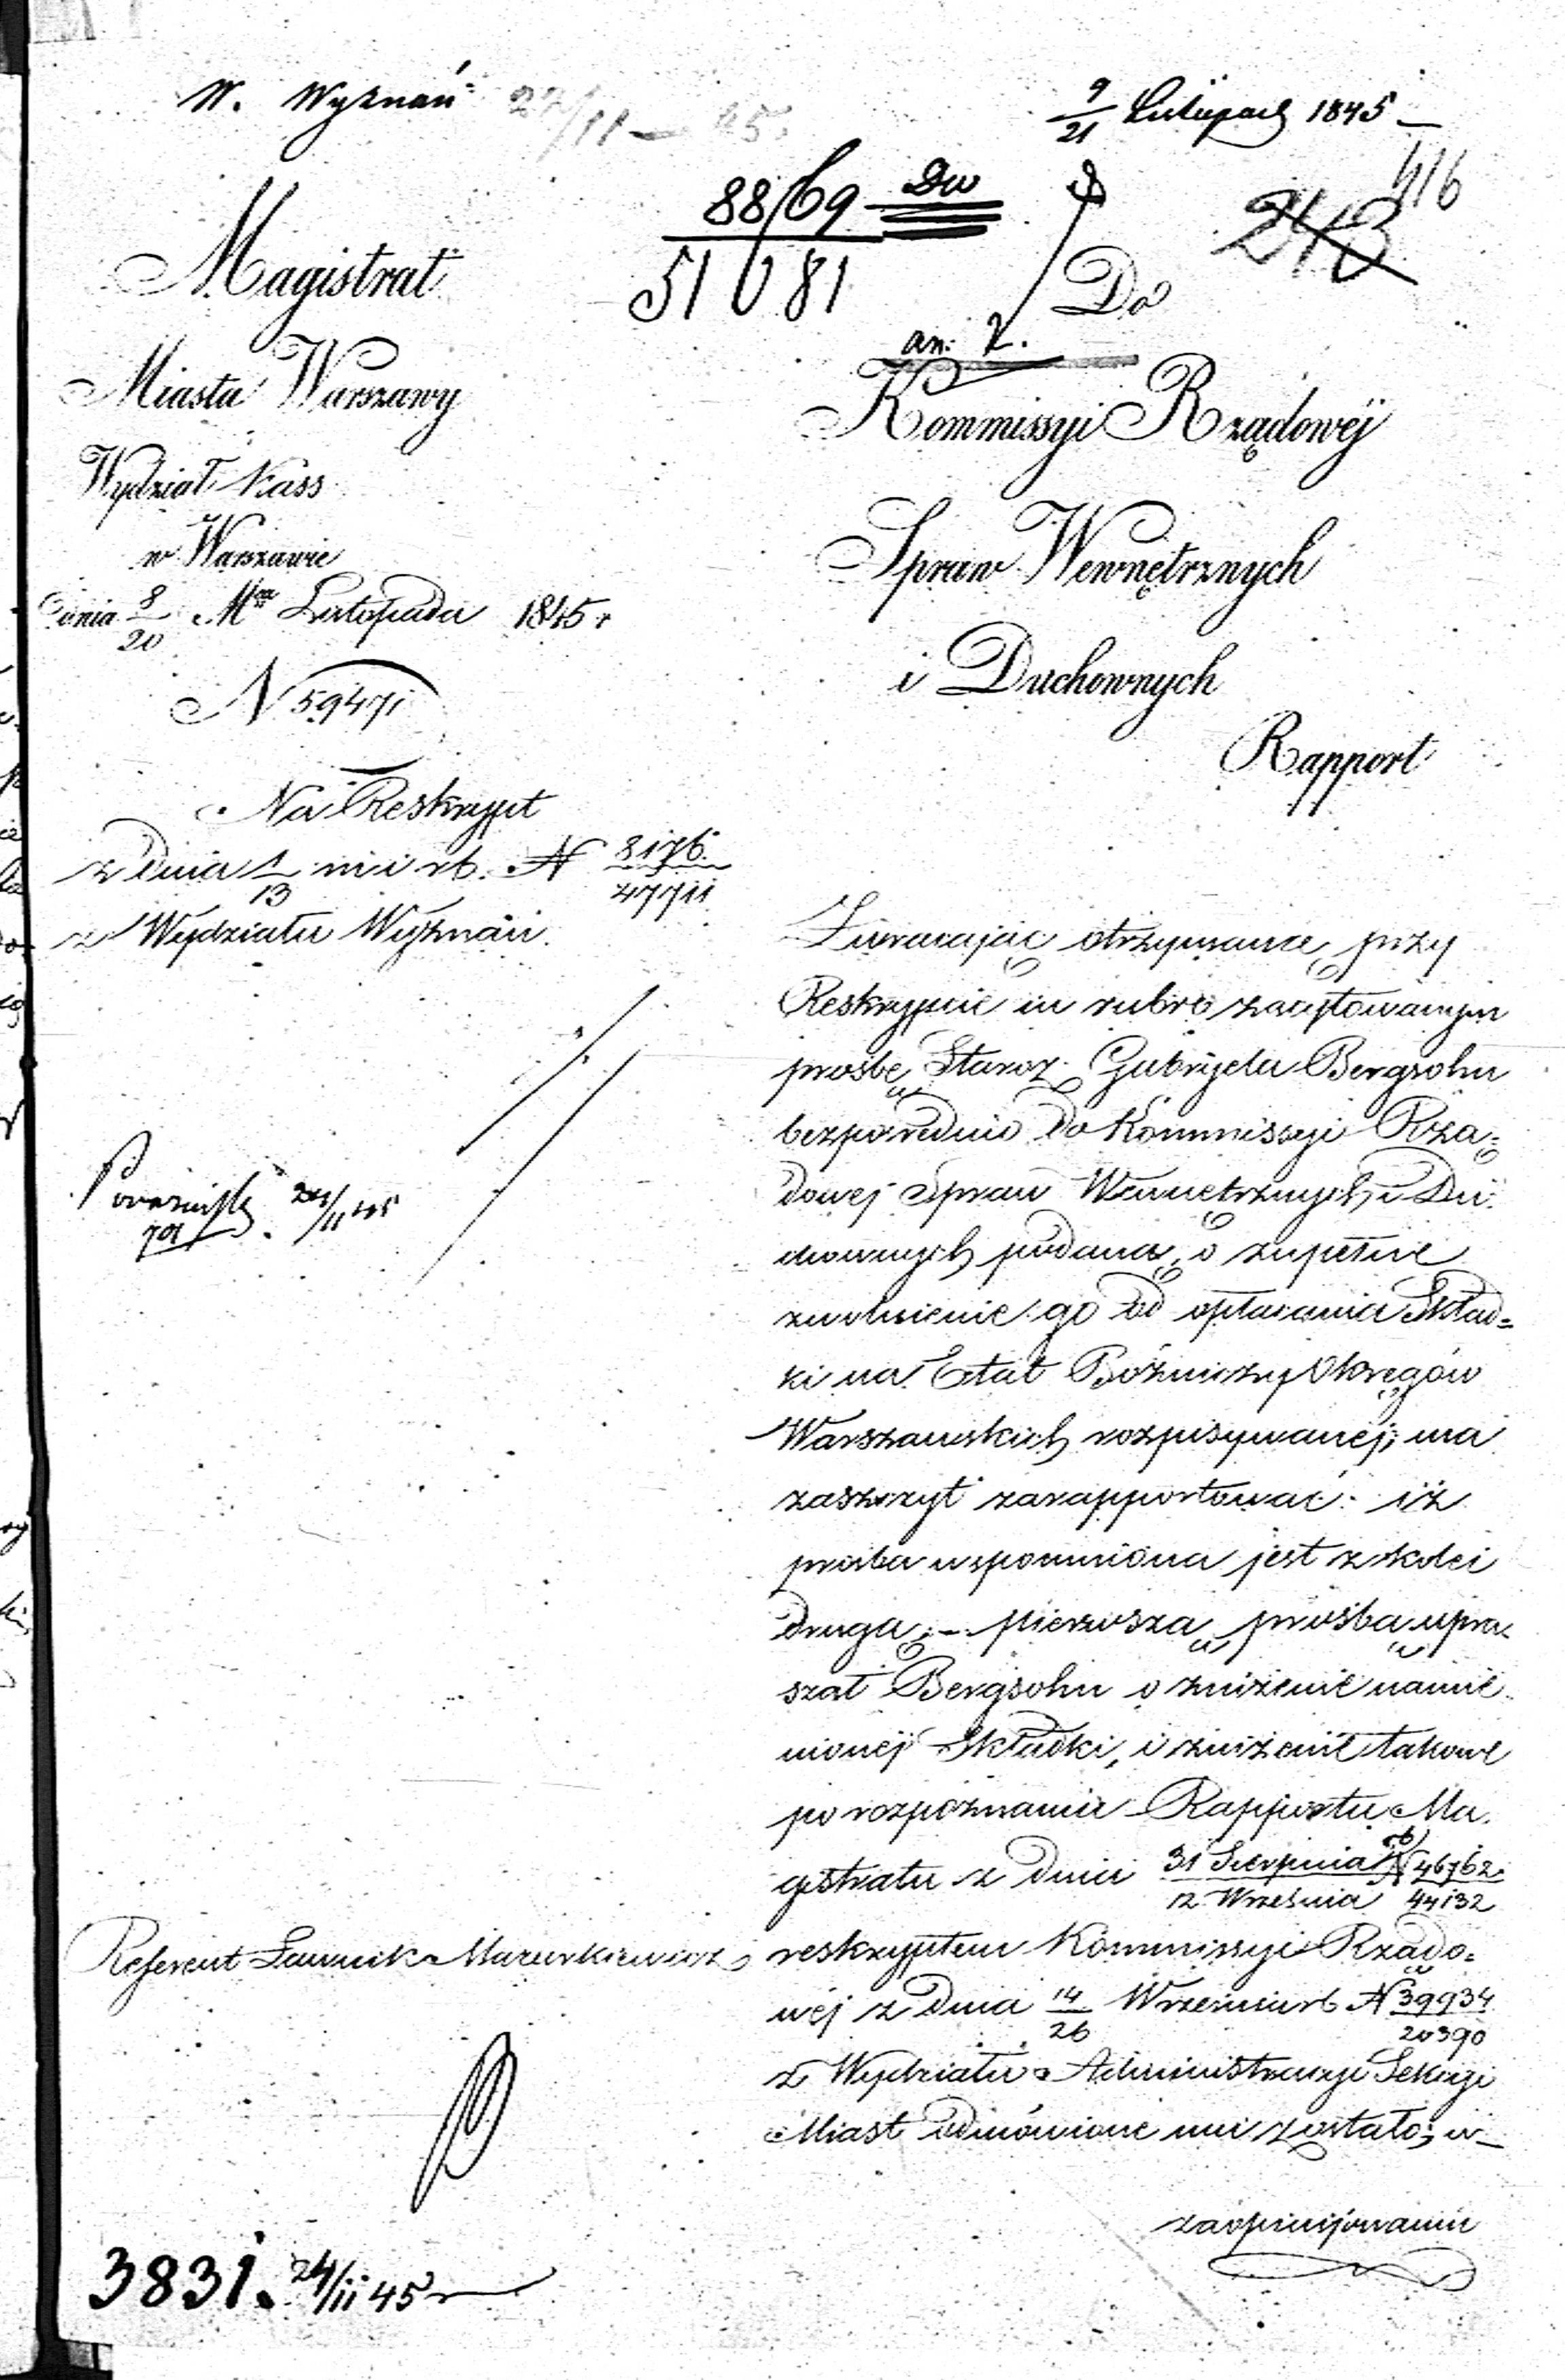 W. Wyznań 27/11 45.
9/21 Listopad 1845
416
243
8869 Dw
51081
Magistrat
Miasta Warszawy
Wydział Kass
w Warszawie
dnia 8/20 Mca Listopada 1845 r
N 59471
Do
an: 2.
Kommissyi Rządowéj
Spraw Wewnętrznych
i Duchownych
Rapport
Na Reskrypt
z dnia 1/13 m i rb. N 8176/47711
z Wydziału Wyznań.
24/11 45
Zwracając otrzymaną przy
Reskrypcie in rubro zacytowanym
prośbę Staroz. Gabryela Bergsohn
bezpośrednio do Kommissyi Rzą=
dowej Spraw Wewnętrznych i Du
chownych podaną, o zupełne
zwolnienie go od opłacania Skład=
ki na Etat Bóżniczy Okręgów
Warszawskich rozpisywanej; ma
zaszczyt zarapportować: iż
prośba wspomniona jest z kolei
drugą;- pierwszą prośbą upra
szał Bergsohn o zniżenie namie
nionéj Składki, i zniżenie takowe
po rozpoznaniu Rapportu Ma
gistratu z dnia 31 Sierpnia/12 Września rb N 46762/44132
reskryptem Kommissyi Rządo=
wéj z dnia 14/26 Września rb N 39934/20390
z Wydziału Administracyi Sekcyi
Miast odmówione mu zostało; w
zaopiniowaniu
Referent Ławnik Mazurkiewicz
3831. 24/11 45